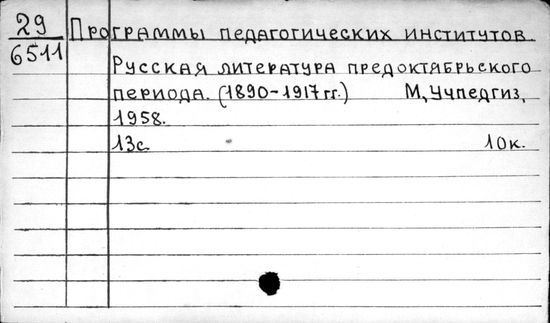 29 Программы педагогических институтов.
6511
Русская литература предоктябрьского
периода. (1890-1917гг.) М, Учпедгиз,
1958.
13с 10к.